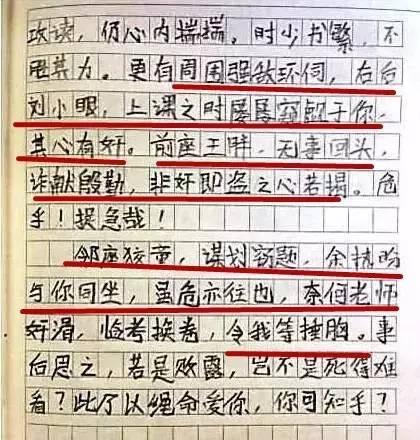 攻读，仍心内揣揣。时少书繁，不
胜其力。更有周围强敌环伺，右台
刘小眼，上课之时屡屡窥觎于你，
其心有奸。前座王胖，无事回头，
诈献殷勤，非奸即盗之心若揭。危
乎！捉急哉！
邻座狡童，谋划窃题，余
与你同坐，虽危亦往也，奈何老师
奸滑，临考换卷，令我等捶胸。事
后思之，若是败露，岂不是死得难
看？此乃以绳命爱你，你可知乎？